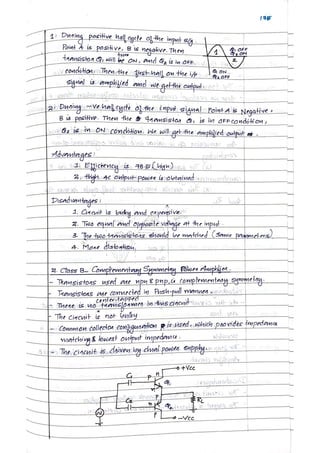 1: During positive half cycle of the input sig.
Point A is positive, B is negative. Then
transistor Q1 will be ON, and Q2 is in OFF
condition. Then the first half on the i/p
signal is amplified and we get the output.
1
2
Q1 ON
Q2 OFF
2: During -ve half cycle of the input signal Point A is Negative,
B is positive. Then the transistor Q1 is in OFF condition,
Q2 is in ON condition. We will get the amplified output
Advantages:
1. Efficiency is 78.5% (high)
2. High AC output power is obtained
Disadvantages:
1. Circuit is bulky and expensive.
2. Two equal and opposite voltage at the input
3. The two transistors should be matched (Same parameters)
4. More distortion
Class B Complementary Symmetry Power Amplifier
- Transistors used are npn & pnp, ie complementary symmetry.
- Transistors are connected in Push-pull manner.
center tapped
- There is no transformer in this circuit
- The circuit is not bulky
- Common collector configuration is used, which provides impedance
matching & lowest output impedance.
- The circuit is driven by dual power supply.
+Vcc
C1
C2
RL
-Vcc